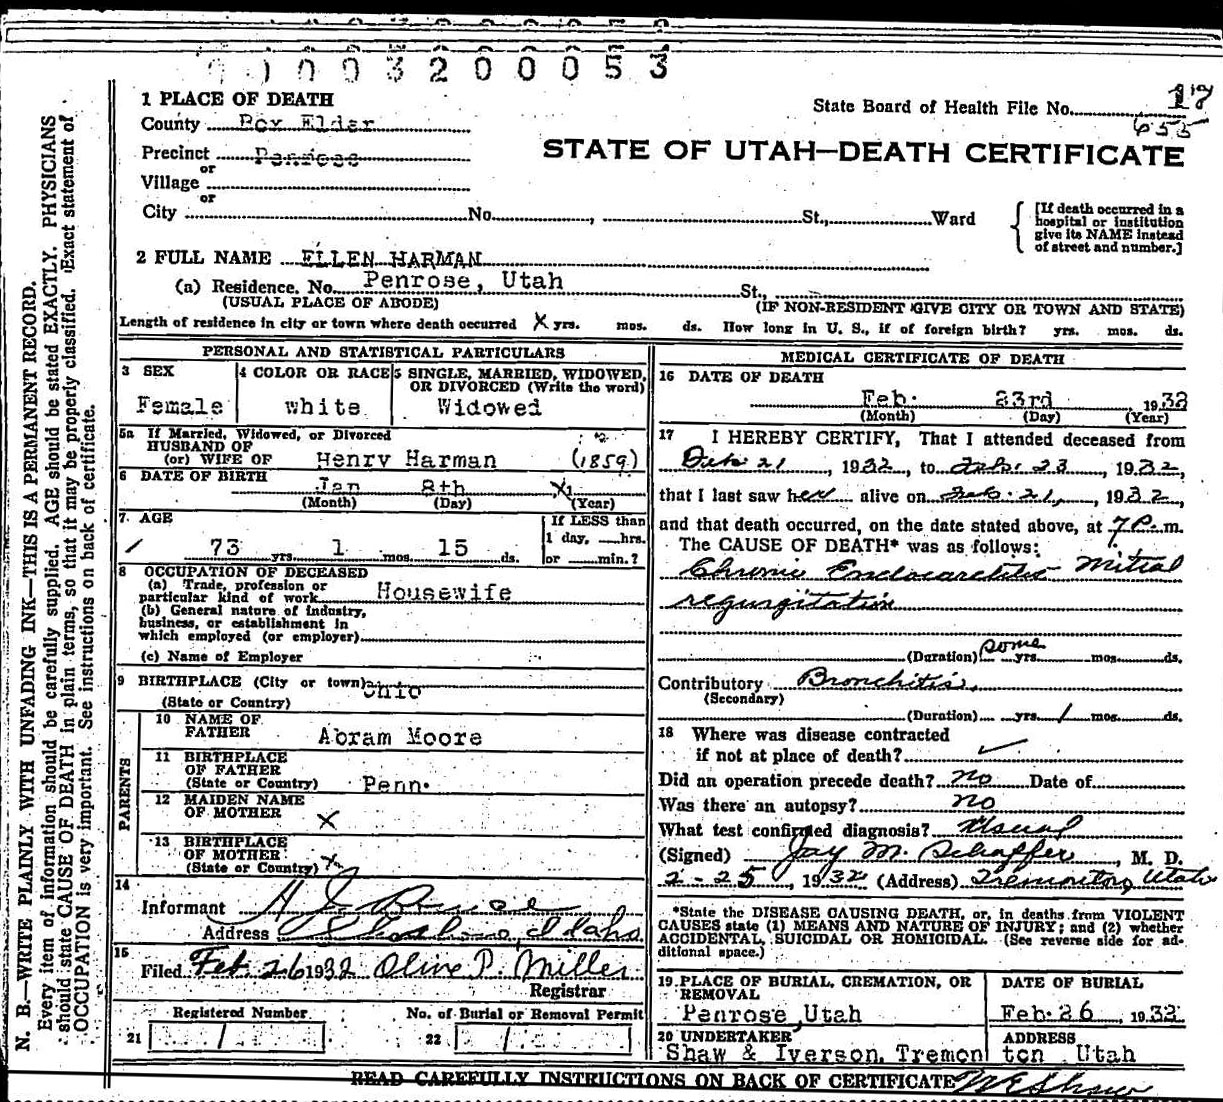 0 1 0 0 3 2 0 0 0 5 3
1 PLACE OF DEATH
State Board of Health File No. 17
655
County Box Elder
STATE OF UTAH—DEATH CERTIFICATE
Precinct Penrose
or
Village
or
City No. , St., Ward
[If death occurred in a hospital or institution give its NAME instead of street and number.]
2 FULL NAME ELLEN HARMAN
(a) Residence. No. Penrose, Utah St.,
(USUAL PLACE OF ABODE) (IF NON-RESIDENT GIVE CITY OR TOWN AND STATE)
Length of residence in city or town where death occurred X yrs. mos. ds. How long in U. S., if of foreign birth? yrs. mos. ds.
PERSONAL AND STATISTICAL PARTICULARS
3 SEX
Female
4 COLOR OR RACE
white
5 SINGLE, MARRIED, WIDOWED, OR DIVORCED (Write the word)
Widowed
5a If Married, Widowed, or Divorced
HUSBAND OF
(or) WIFE OF Henry Harman (1859)
6 DATE OF BIRTH
Jan 8th X
(Month) (Day) (Year)
7. AGE
73 yrs. 1 mos. 15 ds.
If LESS than
1 day, hrs.
or min.?
8 OCCUPATION OF DECEASED
(a) Trade, profession or
particular kind of work Housewife
(b) General nature of industry,
business, or establishment in
which employed (or employer)
(c) Name of Employer
9 BIRTHPLACE (City or town) Ohio
(State or Country)
PARENTS
10 NAME OF
FATHER Abram Moore
11 BIRTHPLACE
OF FATHER
(State or Country) Penn.
12 MAIDEN NAME
OF MOTHER X
13 BIRTHPLACE
OF MOTHER
(State or Country) X
14
Informant
Address Shoshone, Idaho
15
Filed Feb 26 1932 Olive P. Miller
Registrar
Registered Number No. of Burial or Removal Permit
21 1 22 1
MEDICAL CERTIFICATE OF DEATH
16 DATE OF DEATH
Feb. 23rd 1932
(Month) (Day) (Year)
17 I HEREBY CERTIFY, That I attended deceased from
Feb 21, 1932, to Feb. 23, 1932,
that I last saw her alive on Feb. 21, 1932,
and that death occurred, on the date stated above, at 7 P. m.
The CAUSE OF DEATH* was as follows:
Chronic Endocarditis Mitral
regurgitation
(Duration) some yrs. mos. ds.
Contributory Bronchitis,
(Secondary)
(Duration) yrs. 1 mos. ds.
18 Where was disease contracted
if not at place of death?
Did an operation precede death? no Date of
Was there an autopsy? no
What test confirmed diagnosis? Usual
(Signed) Jay M. Schaffer, M. D.
2-25, 1932 (Address) Tremonton, Utah
*State the DISEASE CAUSING DEATH, or, in deaths from VIOLENT
CAUSES state (1) MEANS AND NATURE OF INJURY; and (2) whether
ACCIDENTAL, SUICIDAL OR HOMICIDAL. (See reverse side for ad-
ditional space.)
19 PLACE OF BURIAL, CREMATION, OR
REMOVAL
Penrose, Utah
DATE OF BURIAL
Feb. 26, 1932
20 UNDERTAKER
Shaw & Iverson, Tremon
ADDRESS
ton Utah
READ CAREFULLY INSTRUCTIONS ON BACK OF CERTIFICATE W E Shaw
N. B.—WRITE PLAINLY WITH UNFADING INK—THIS IS A PERMANENT RECORD.
Every item of information should be carefully supplied. AGE should be stated EXACTLY. PHYSICIANS
should state CAUSE OF DEATH in plain terms, so that it may be properly classified. Exact statement of
OCCUPATION is very important. See instructions on back of certificate.